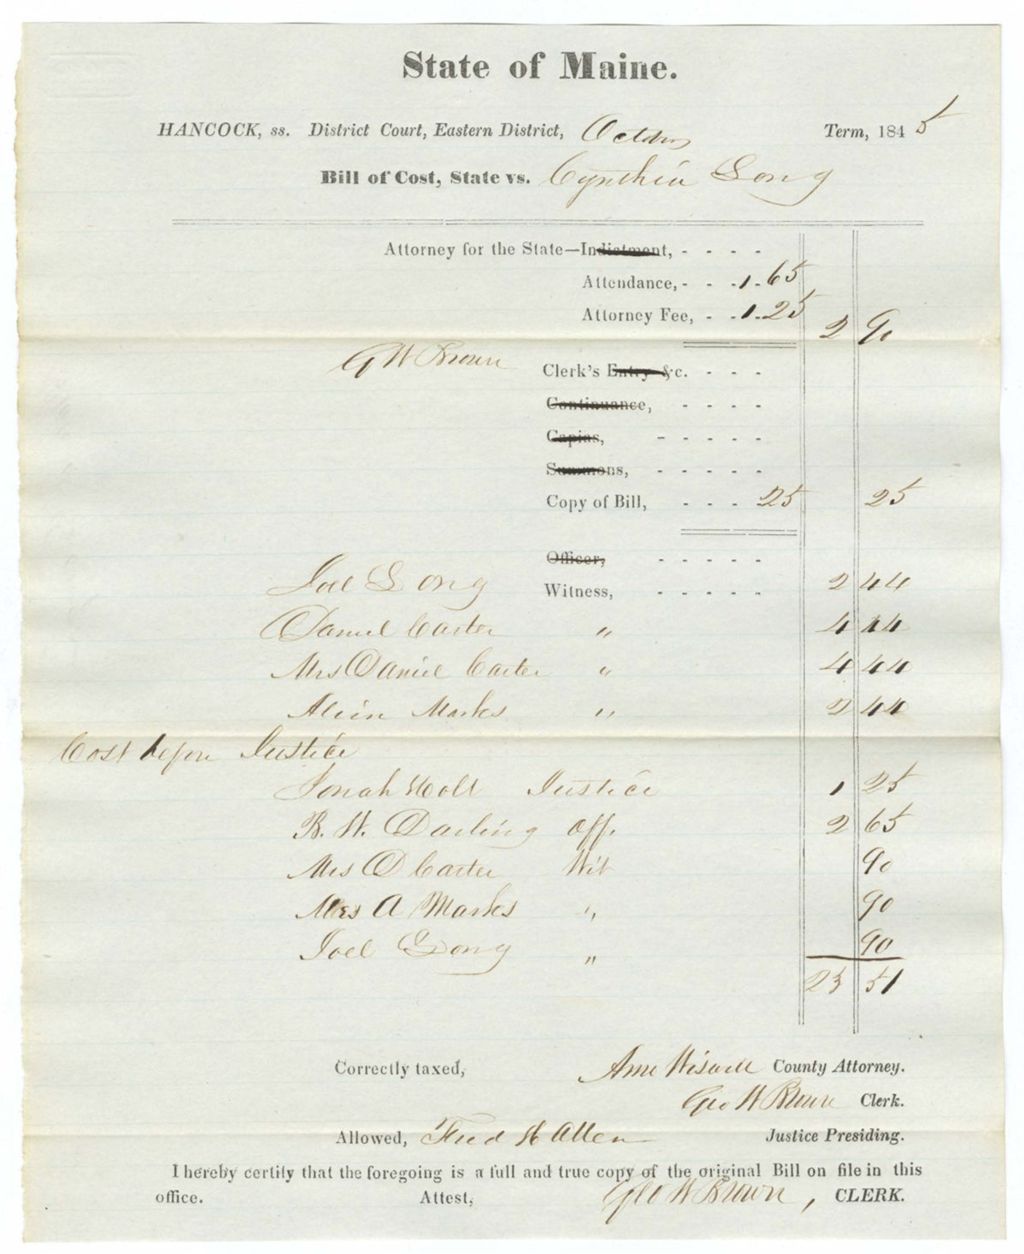 State of Maine.
HANCOCK, ss. District Court, Eastern District, October Term, 1845
Bill of Cost, State vs. Cynthia Long
Attorney for the State—Indictment, - - - -
Attendance, - - - 1.65
Attorney Fee, - - 1.25 2 90
G W Brown Clerk's Entry &c. - - - -
Continuance, - - - -
Capias, - - - - -
Summons, - - - - -
Copy of Bill, - - - 25 25
Officer, - - - - -
Joel Long Witness, - - - - - 2 44
Daniel Carter " 4 44
Mrs Daniel Carter " 4 44
Marks " 2 44
Cost before Justice
Jonah Holt Justice 1 25
B. W. Darling Off. 2 65
Mrs D Carter Wit 90
Mrs A Marks " 90
Joel Long " 90
23 51
Correctly taxed, Wiswell County Attorney.
Geo W Brown Clerk.
Allowed, Fred H Allen Justice Presiding.
I hereby certify that the foregoing is a full and true copy of the original Bill on file in this
office. Attest, Geo W Brown, CLERK.